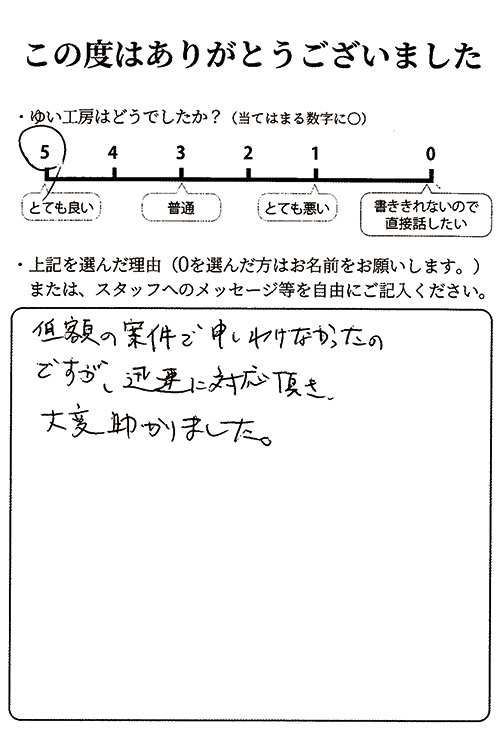 この度はありがとうございました
・ゆい工房はどうでしたか？（当てはまる数字に〇）
5 4 3 2 1 0
とても良い 普通 とても悪い 書ききれないので
直接話したい
・上記を選んだ理由（0を選んだ方はお名前をお願いします。）
または、スタッフへのメッセージ等を自由にご記入ください。
低額の案件で申しわけなかったの
ですが、迅速に対応頂き、
大変助かりました。